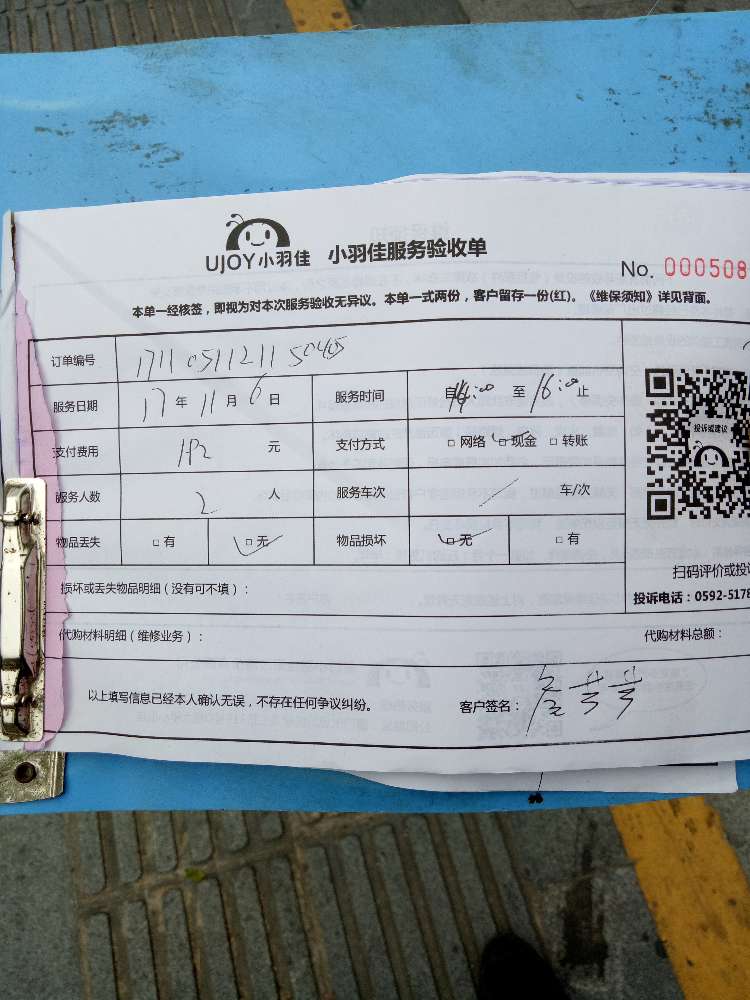 UJOY小羽佳 小羽佳服务验收单
No. 0000508
本单一经核签，即视为对本次服务验收无异议。本单一式两份，客户留存一份(红)。《维保须知》详见背面。
订单编号 17110511211150405
服务日期 17年11月6日 服务时间 自14:00至16:00止
支付费用 192元 支付方式 □网络 □现金 □转账
服务人数 2人 服务车次 / 车/次
物品丢失 □有 □无 物品损坏 □无 □有
投诉或建议
扫码评价或投
投诉电话：0592-5178
损坏或丢失物品明细（没有可不填）：
代购材料明细（维修业务）： 代购材料总额：
以上填写信息已经本人确认无误，不存在任何争议纠纷。 客户签名：